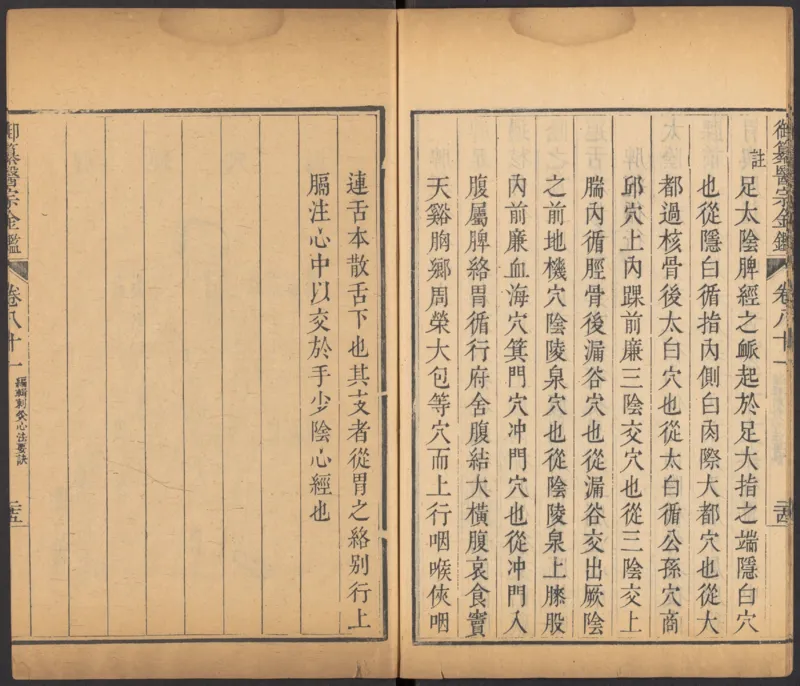 御纂醫宗金鑑
卷八十一
註
足太陰脾經之脈起於足大指之端隱白穴
也從隱白循指內側白肉際大都穴也從大
都過核骨後太白穴也從太白循公孫穴商
邱穴上內踝前廉三陰交穴也從三陰交上
腨內循脛骨後漏谷穴也從漏谷交出厥陰
之前地機穴陰陵泉穴也從陰陵泉上膝股
內前廉血海穴箕門穴冲門穴也從冲門入
腹屬脾絡胃循行府舍腹結大橫腹哀食竇
天谿胸鄉周榮大包等穴而上行咽喉俠咽
連舌本散舌下也其支者從胃之絡別行上
膈注心中以交於手少陰心經也
御纂醫宗金鑑
卷八十一
編輯刺灸心法要訣